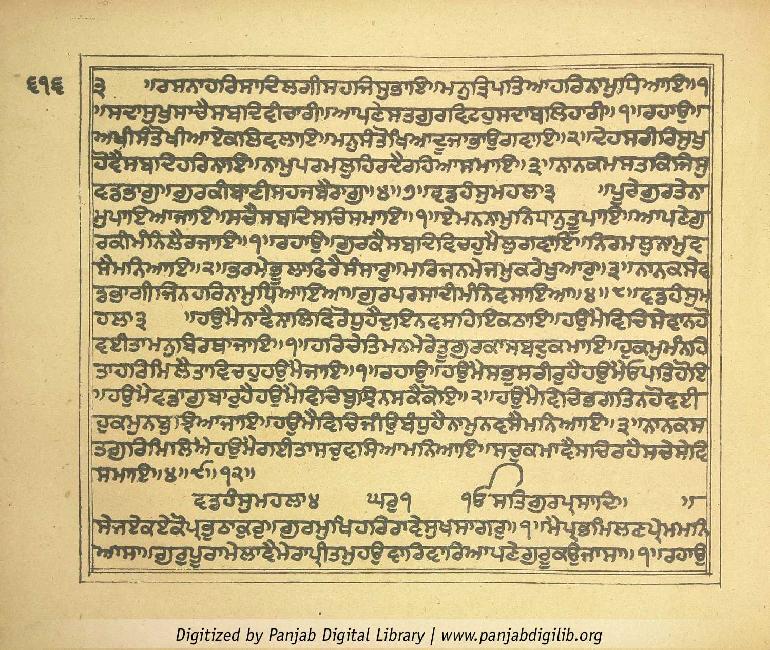 ੬੧੬
੩ ॥ਰਸਨਾਹਰਿਸਾਦਿਲਗੀਸਹਜਿਸੁਭਾਇ॥ਮਨੁਤ੍ਰਿਪਤਿਆਹਰਿਨਾਮੁਧਿਆਇ॥੧
॥ਸਦਾਸੁਖੁਸਾਚੈਸਬਦਿਵੀਚਾਰੀ॥ਆਪਣੇਸਤਗੁਰਵਿਟਹੁਸਦਾਬਲਿਹਾਰੀ॥੧॥ਰਹਾਉ॥
ਅਖੀਸੰਤੋਖੀਆਏਕਲਿਵਲਾਇ॥ਮਨੁਸੰਤੋਖਿਆਦੂਜਾਭਾਉਗਵਾਇ॥੨॥ਦੇਹਸਰੀਰਿਸੁਖੁ
ਹੋਵੈਸਬਦਿਹਰਿਨਾਇ॥ਨਾਮੁਪਰਮਲੁਹਿਰਦੈਰਹਿਆਸਮਾਇ॥੩॥ਨਾਨਕਮਸਤਕਿਜਿਸੁ
ਵਡਭਾਗੁ॥ਗੁਰਕੀਬਾਣੀਸਹਜਬੈਰਾਗੁ॥੪॥੭॥ਵਡਹੰਸੁਮਹਲਾ੩ ॥ਪੂਰੇਗੁਰਤੇਨਾ
ਮੁਪਾਇਆਜਾਇ॥ਸਚੈਸਬਦਿਸਚਿਸਮਾਇ॥੧॥ਏਮਨਨਾਮੁਨਿਧਾਨੁਤੂਪਾਇ॥ਆਪਣੇਗੁ
ਰਕੀਮੰਨਿਲੈਰਜਾਇ॥੧॥ਰਹਾਉ॥ਗੁਰਕੈਸਬਦਿਵਿਚਹੁਮੈਲੁਗਵਾਇ॥ਨਿਰਮਲੁਨਾਮੁਵ
ਸੈਮਨਿਆਇ॥੨॥ਭਰਮੇਭੂਲਾਫਿਰੈਸੰਸਾਰੁ॥ਮਰਿਜਨਮੈਜਮੁਕਰੇਖੁਆਰੁ॥੩॥ਨਾਨਕਸੇਵ
ਡਭਾਗੀਜਿਨਹਰਿਨਾਮੁਧਿਆਇਆ॥ਗੁਰਪਰਸਾਦੀਮੰਨਿਵਸਾਇਆ॥੪॥੮॥ਵਡਹੰਸੁਮ
ਹਲਾ੩ ॥ਹਉਮੈਨਾਵੈਨਾਲਿਵਿਰੋਧੁਹੈਦੁਇਨਵਸਹਿਇਕਠਾਇ॥ਹਉਮੈਵਿਚਿਸੇਵਾਨਹੋ
ਵਈਤਾਮਨੁਬਿਰਥਾਜਾਇ॥੧॥ਹਰਿਚੇਤਿਮਨਮੇਰੇਤੂਗੁਰਕਾਸਬਦੁਕਮਾਇ॥ਹੁਕਮੁਮੰਨਹਿ
ਤਾਹਰਿਮਿਲੈਤਾਵਿਚਹੁਹਉਮੈਜਾਇ॥੧॥ਰਹਾਉ॥ਹਉਮੈਸਭੁਸਰੀਰੁਹੈਹਉਮੈਓਪਤਿਹੋਇ
॥ਹਉਮੈਵਡਾਗੁਬਾਰੁਹੈਹਉਮੈਵਿਚਿਬੁਝਿਨਸਕੈਕੋਇ॥੨॥ਹਉਮੈਵਿਚਿਭਗਤਿਨਹੋਵਈ
ਹੁਕਮੁਨਬੁਝਿਆਜਾਇ॥ਹਉਮੈਵਿਚਿਜੀਉਬੰਧੁਹੈਨਾਮੁਨਵਸੈਮਨਿਆਇ॥੩॥ਨਾਨਕਸ
ਤਗੁਰਿਮਿਲਿਐਹਉਮੈਗਈਤਾਸਚੁਵਸਿਆਮਨਿਆਇ॥ਸਚੁਕਮਾਵੈਸਚਿਰਹੈਸਚੇਸੇਵਿ
ਸਮਾਇ॥੪॥੯॥੧੨॥
ਵਡਹੰਸੁਮਹਲਾ੪ ਘਰੁ੧ ੴਸਤਿਗੁਰਪ੍ਰਸਾਦਿ॥ ॥
ਸੇਜਏਕਏਕੋਪ੍ਰਭੁਠਾਕੁਰੁ॥ਗੁਰਮੁਖਿਹਰਿਰਾਵੇਸੁਖਸਾਗਰੁ॥੧॥ਮੈਪ੍ਰਭਮਿਲਣਪ੍ਰੇਮਮਨਿ
ਆਸਾ॥ਗੁਰੁਪੂਰਾਮੇਲਾਵੈਮੇਰਾਪ੍ਰੀਤਮੁਹਉਵਾਰਿਵਾਰਿਆਪਣੇਗੁਰੂਕਉਜਾਸਾ॥੧॥ਰਹਾਉ
Digitized by Panjab Digital Library | www.panjabdigilib.org